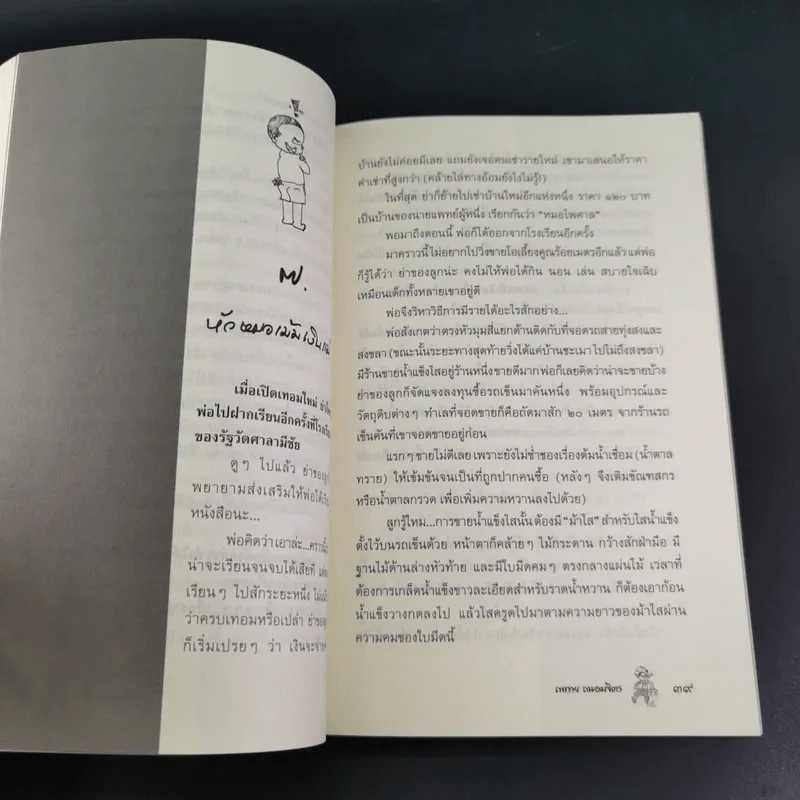 ๗.
หัวหมอเมมัเงินแ
เมื่อเปิดเทอมใหม่
พ่อไปฝากเรียนอีกครั้งที่โรงเรียน
ของรัฐวัดศาลามีชัย
ดูๆ ไปแล้ว ย่าของลูก
พยายามส่งเสริมให้พ่อได้เรียน
หนังสือนะ...
พ่อคิดว่าเอาล่ะ...คราวนี้
น่าจะเรียนจนจบได้เสียที
เรียนๆ ไปสักระยะหนึ่ง
ว่าครบเทอมหรือเปล่า ย่าของลูก
ก็เริ่มเปรยๆ ว่า เงินจะจ่าย
บ้านยังไม่ค่อยมีเลย แถมยังเจอคนเช่ารายใหม่ เขามาเสนอให้ราคา
ค่าเช่าที่สูงกว่า (คล้ายไล่ทางอ้อมยังไงไม่รู้!)
ในที่สุด ย่าก็ย้ายไปเช่าบ้านใหม่อีกแห่งหนึ่ง ราคา ๑๒๐ บาท
เป็นบ้านของนายแพทย์ผู้หนึ่ง เรียกกันว่า “หมอไพศาล”
พอมาถึงตอนนี้ พ่อก็ได้ออกจากโรงเรียนอีกครั้ง
มาคราวนี้ไม่อยากไปวิ่งขายโอเลี้ยงคูณร้อยเมตรอีกแล้ว แต่พ่อ
ก็รู้ได้ว่า ย่าของลูกน่ะ คงไม่ให้พ่อได้กิน นอน เล่น สบายใจเฉิบ
เหมือนเด็กทั้งหลายเขาอยู่ดี
พ่อจึงริหาวิธีการมีรายได้อะไรสักอย่าง...
พ่อสังเกตว่าตรงหัวมุมสี่แยกด้านติดกับที่จอดรถสายทุ่งสงและ
สงขลา (ขณะนั้นระยะทางสุดท้ายวิ่งได้แค่บ้านชะเมา ไปไม่ถึงสงขลา)
มีร้านขายน้ำแข็งไสอยู่ร้านหนึ่งขายดีมาก พ่อก็เลยคิดว่าน่าจะขายบ้าง
ย่าของลูกก็จัดแจงลงทุนซื้อรถเข็นมาคันหนึ่ง พร้อมอุปกรณ์และ
วัตถุดิบต่างๆ ทำเลที่จอดขายก็คือถัดมาสัก ๒๐ เมตร จากร้านรถ
เข็นคันที่เขาจอดขายอยู่ก่อน
แรกๆ ขายไม่ดีเลย เพราะยังไม่ช่ำชองเรื่องต้มน้ำเชื่อม (น้ำตาล
ทราย) ให้เข้มข้นจนเป็นที่ถูกปากคนซื้อ (หลังๆ จึงเติมขัณฑสกร
หรือน้ำตาลกรวด เพื่อเพิ่มความหวานลงไปด้วย)
ลูกรู้ไหม...การขายน้ำแข็งไสนั้น ต้องมี “ม้าไส” สำหรับไสน้ำแข็ง
ตั้งไว้บนรถเข็นด้วย หน้าตาก็คล้ายๆ ไม้กระดาน กว้างสักฝ่ามือ มี
ฐานไม้ด้านล่างหัวท้าย และมีใบมีดคมๆ ตรงกลางแผ่นไม้ เวลาที่
ต้องการเกล็ดน้ำแข็งขาวละเอียดสำหรับราดน้ำหวาน ก็ต้องเอาก้อน
น้ำแข็งวางกดลงไป แล้วไสครูดไปมาตามความยาวของม้าไสผ่าน
ความคมของใบมีดนี้
เพทาย ถนอมจิตร ๓๙